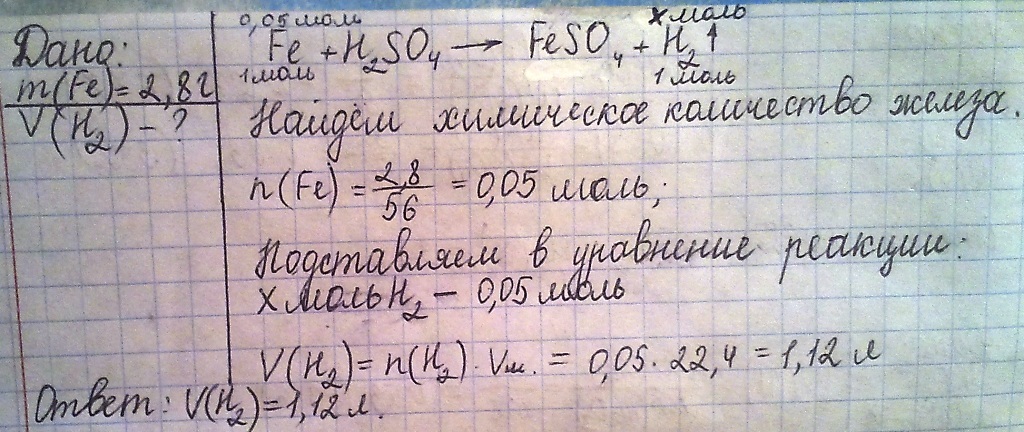 Дано:
m(Fe)=2,8г
V(H₂)-?
0,05 моль
x моль
Fe + H₂SO₄ → FeSO₄ + H₂↑
1 моль
1 моль
Найдём химическое количество железа.
n(Fe) = 2,8/56 = 0,05 моль;
Подставляем в уравнение реакции:
x моль H₂ - 0,05 моль
V(H₂) = n(H₂) · Vм. = 0,05 · 22,4 = 1,12 л
Ответ: V(H₂)=1,12 л.